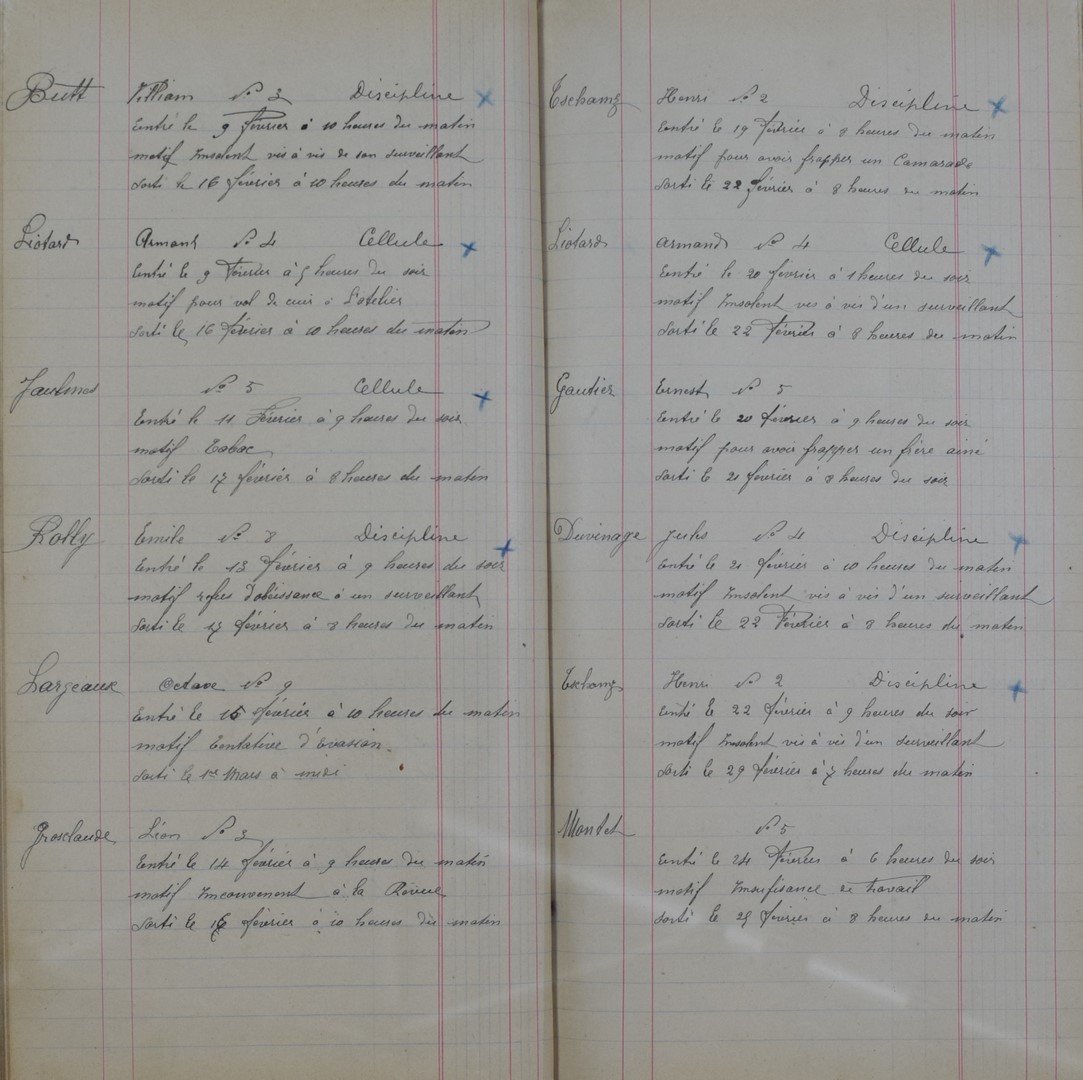 Butt William N° 3 Discipline
Entré le 9 février à 10 heures du matin
motif Insolent vis à vis de son surveillant
Sorti le 16 février à 10 heures du matin
Liotard Armand N° 4 Cellule
Entré le 9 Février à 5 heures du soir
motif pour vol de cuir à l'atelier
Sorti le 16 février à 10 heures du matin
N° 5 Cellule
Entré le 11 Février à 9 heures du soir
motif Tabac
Sorti le 17 février à 8 heures du matin
Rolly Emile N° 8 Discipline
Entré le 13 février à 9 heures du soir
motif refus d'obeissance à un surveillant
Sorti le février à 8 heures du matin
Largeaux Octave N° 9
Entré le 15 février à 10 heures du matin
motif Tentative d'évasion.
Sorti le 1er Mars à midi
Grosclaude Léon N° 3
Entré le 14 février à 9 heures du matin
motif Inconvenent à la Revue
Sorti le 16 février à 10 heures du matin
Eschamz Henri N° 2 Discipline
Entré le 19 Février à 8 heures du matin
motif pour avoir frapper un Camarade
Sorti le 22 février à 8 heures du matin
Liotard Armand N° 4 Cellule
Entré le 20 février à 1 heures du soir
motif Insolent vis à vis d'un surveillant
Sorti le 22 Février à 8 heures du matin
Gautier Ernest N° 5
Entré le 20 février à 9 heures du soir
motif pour avoir frapper un frère ainé
Sorti le 21 février à 8 heures du soir
Duvinage Jules N° 4 Discipline
Entré le 21 février à 10 heures du matin
motif Insolent vis à vis d'un surveillant
Sorti le 22 Février à 8 heures du matin
Eschamz Henri N° 2 Discipline
Entré le 22 février à 9 heures du soir
motif Insolent vis à vis d'un surveillant
Sorti le 29 février à 7 heures du matin
Montet N° 5
Entré le 24 Février à 6 heures du soir
motif Insufisance de travail
Sorti le 25 février à 8 heures du matin